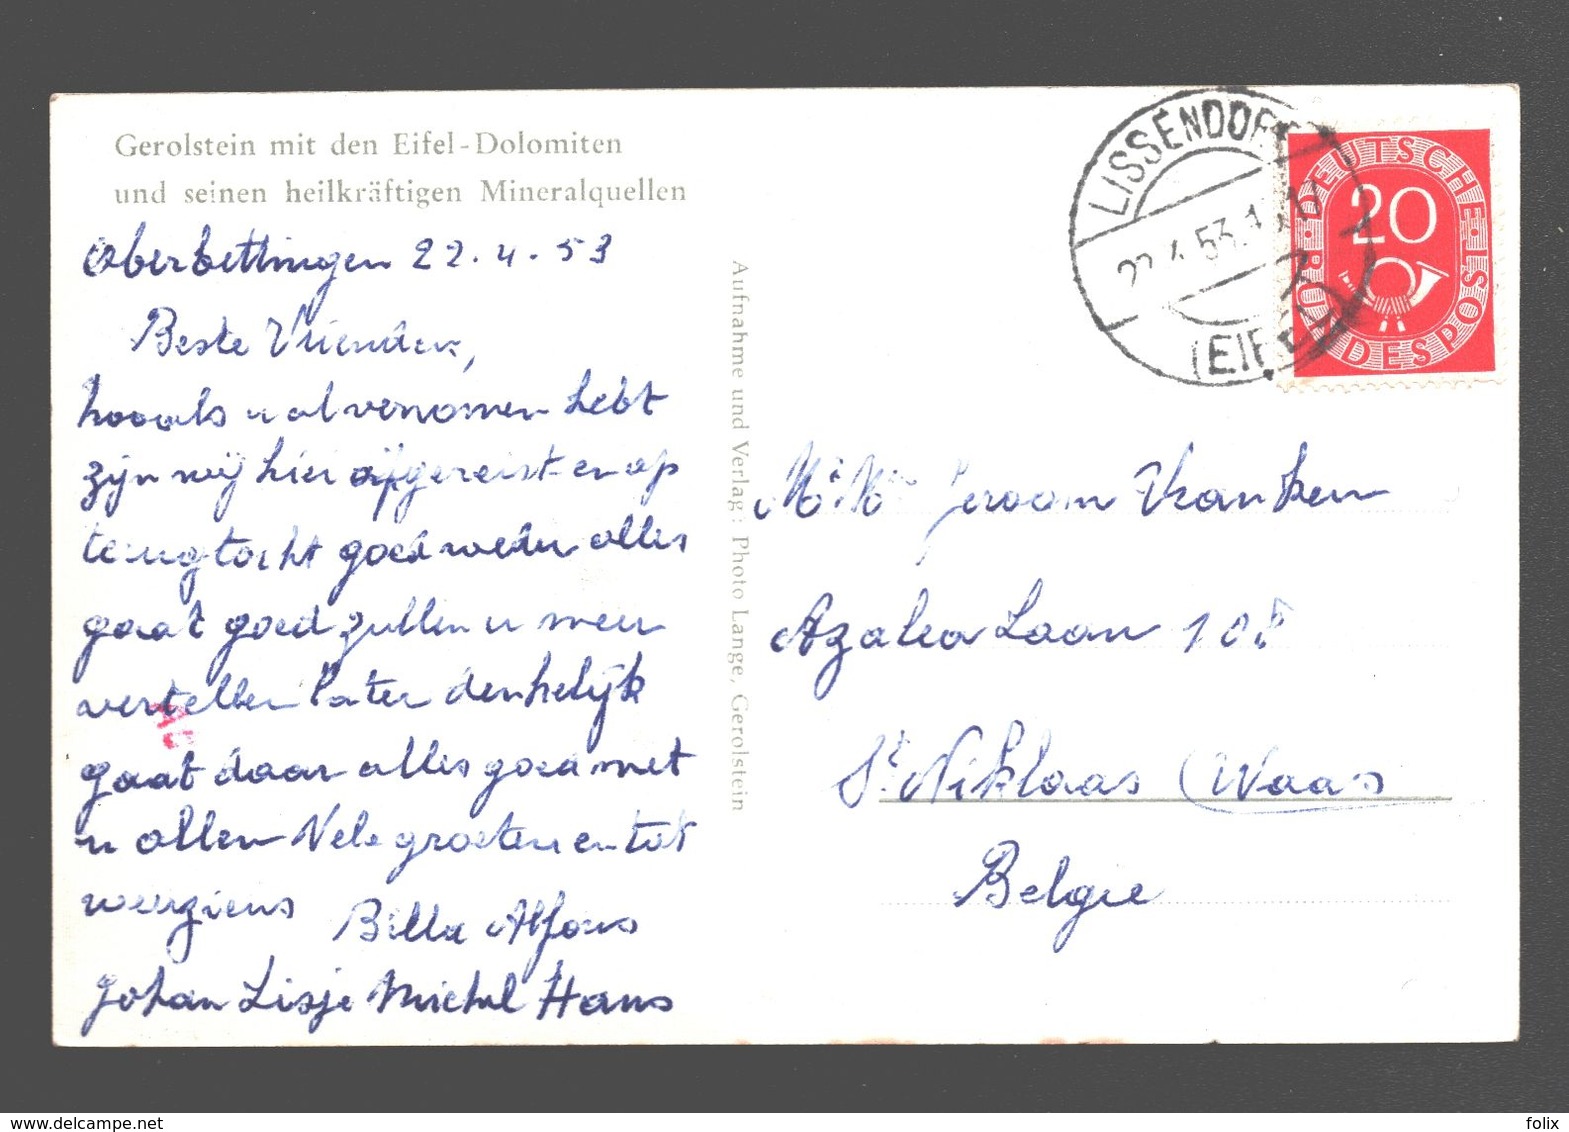 Gerolstein mit den Eifel-Dolomiten
und seinen heilkräftigen Mineralquellen
Oberbettingen 22.4.53
Beste Vrienden,
hooals u al vernomen hebt
zijn wij hier afgereist en op
terugtocht goed weder alles
gaat goed zullen u meer
vertellen later denkelijk
gaat daar alles goed met
u allen Vele groeten en tot
weerziens Billa Alfons
Johan Lisje Michel Hans
Aufnahme und Verlag: Photo Lange, Gerolstein
LISSENDORF
22.4.53.
(EIFEL)
DEUTSCHE BUNDESPOST
20
Jeroom Vranken
Azalea Laan 108
St Niklaas (Waas
Belgie
delcampe.net
folix